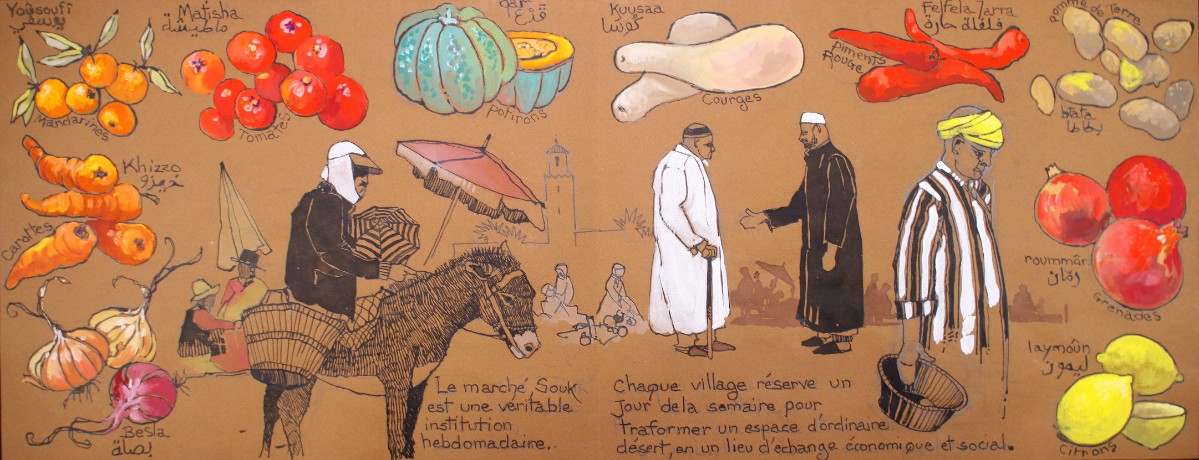 Yoûsoufî
يوسفي
Mandarines
Matisha
ماطيشة
Tomates
قرع
potirons
Kuusaa
كوسا
Courges
Felfela Harra
فلفلة حارة
Piments
Rouge
Pomme de Terre
btata
بطاطا
Khizzo
خيزو
Carottes
Besla
بصلة
roummân
رمان
Grenades
laymoûn
ليمون
Citrons
Le marché Souk
est une véritable
institution
hebdomadaire.
Chaque village réserve un
jour de la semaire pour
traformer un espace d'ordinaire
désert, en un lieu d'échange économique et social.